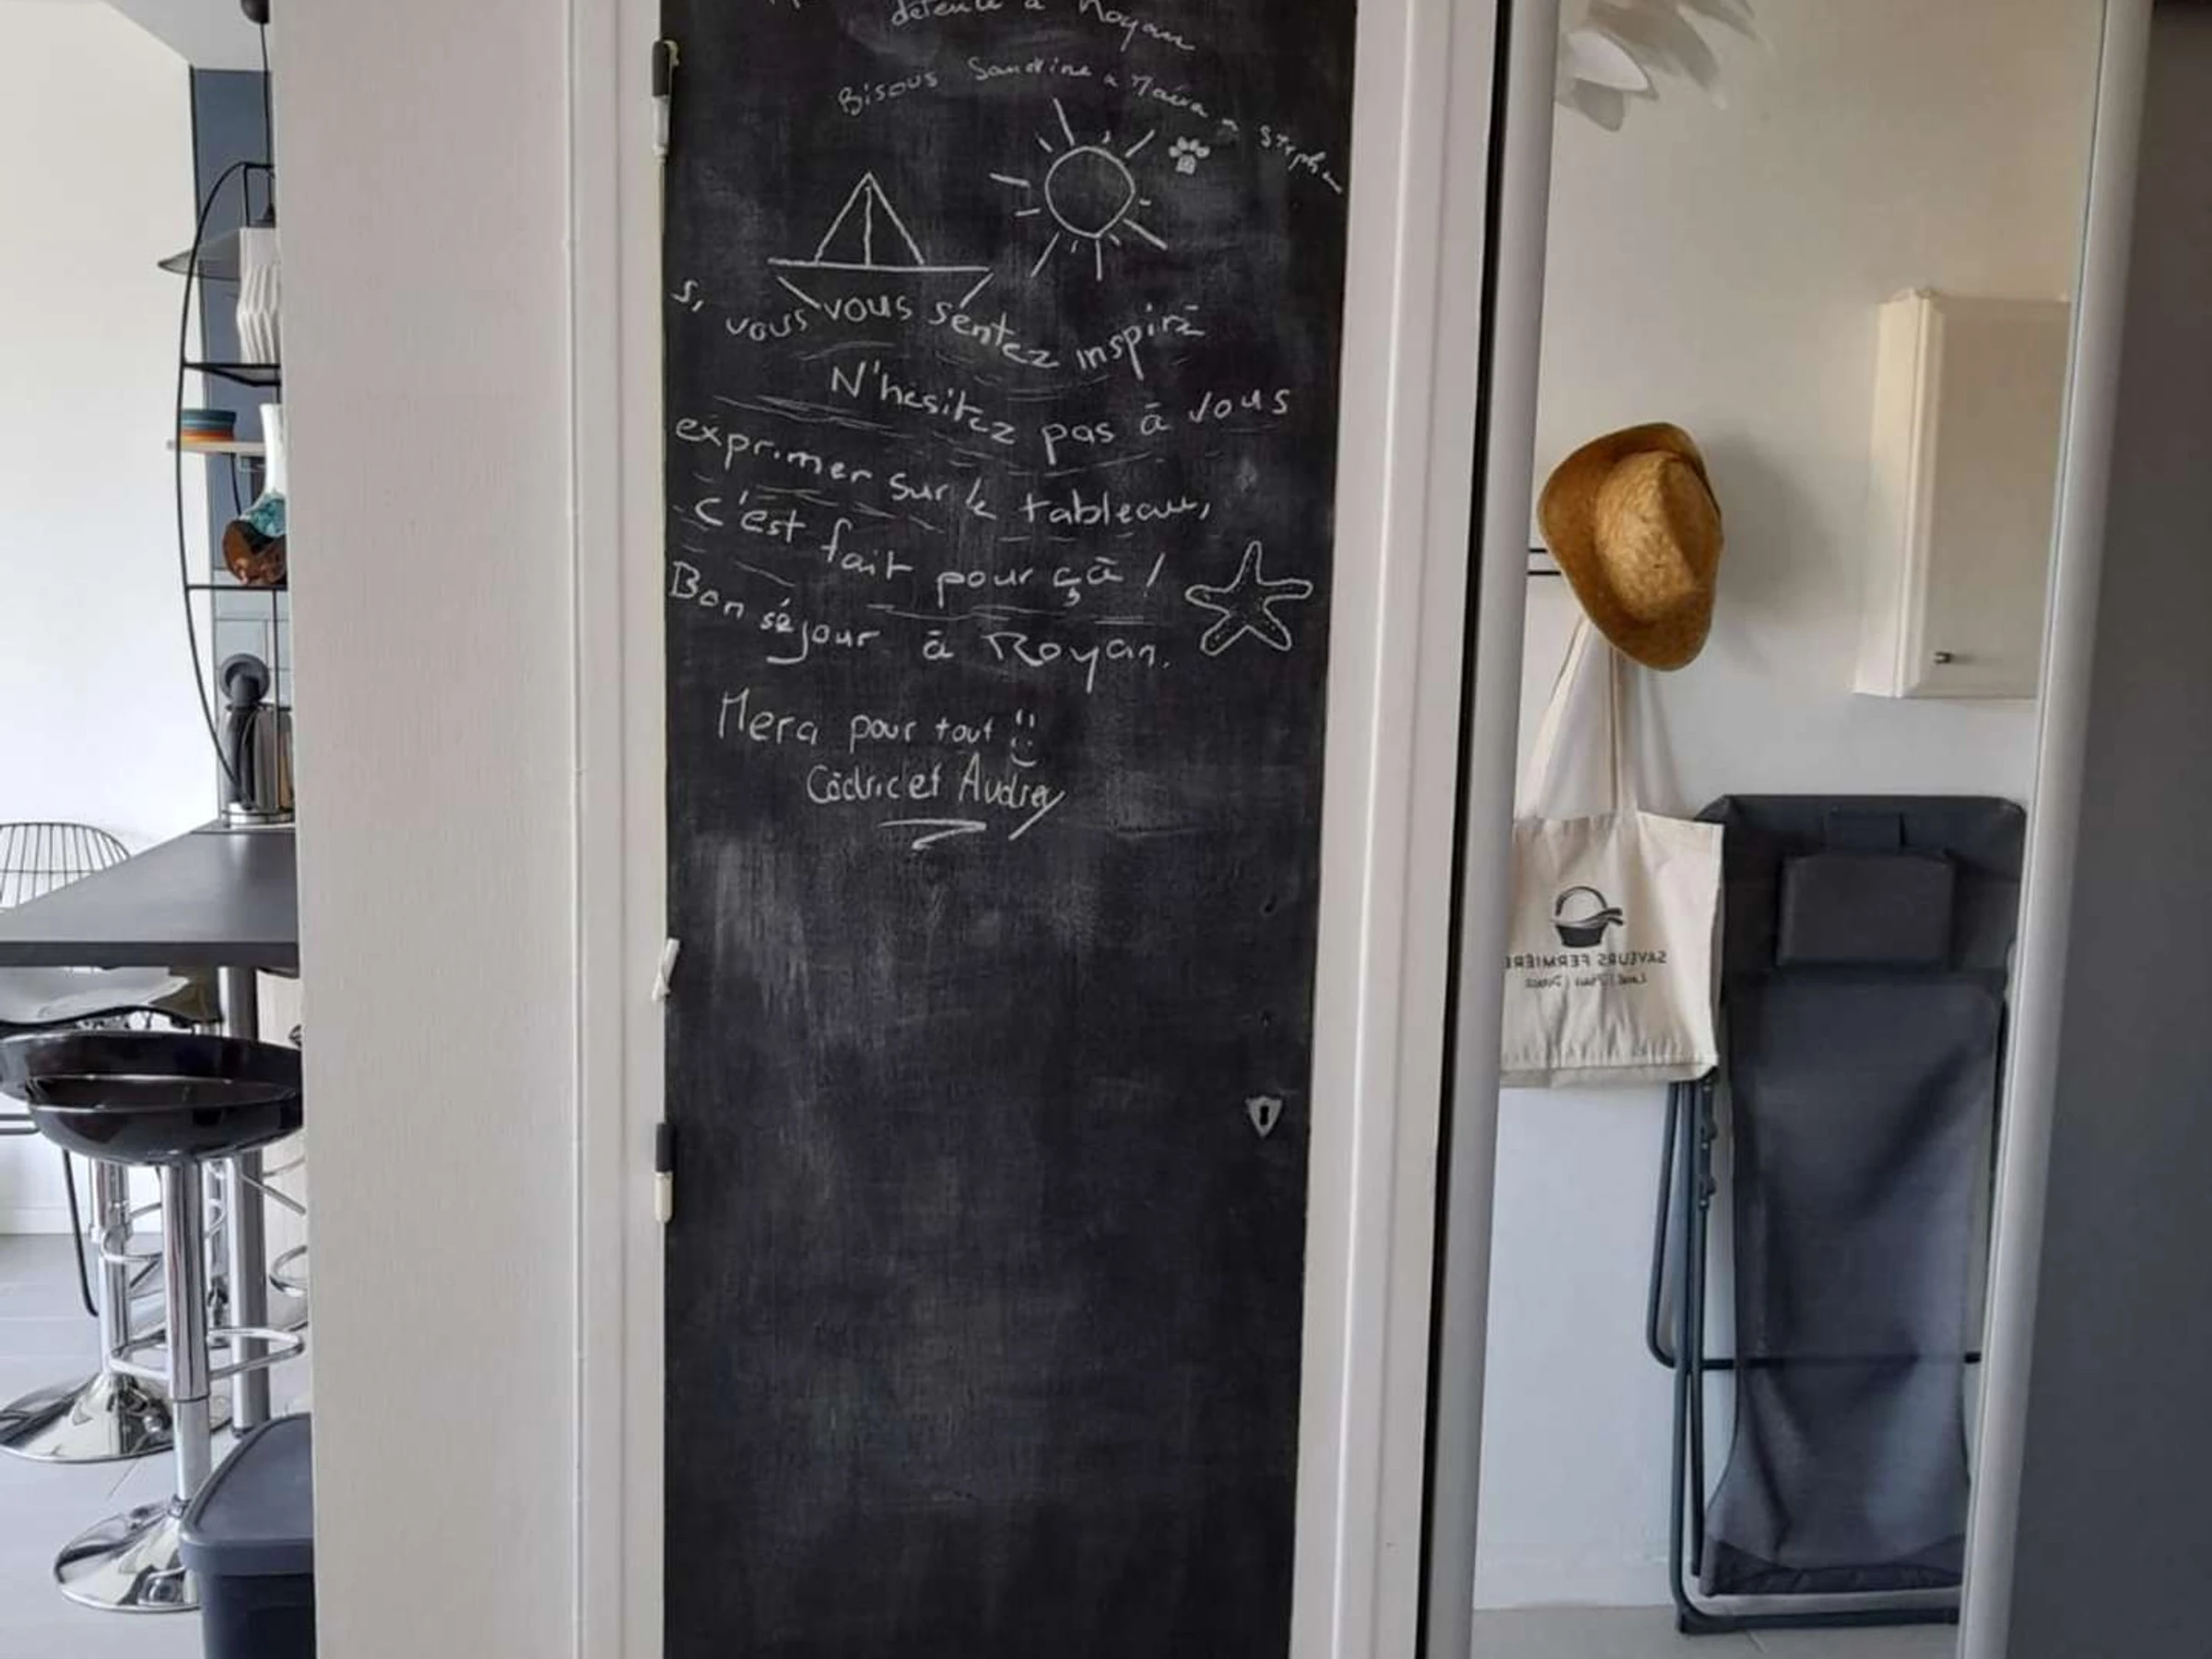 détente à Royan
Bisous Sandrine
Si vous vous sentez inspiré
N'hésitez pas à vous
exprimer sur le tableau,
c'est fait pour çà !
Bon séjour à Royan.
Merci pour tout
Cédric et Audrey
SAVEURS FERMIÈRE